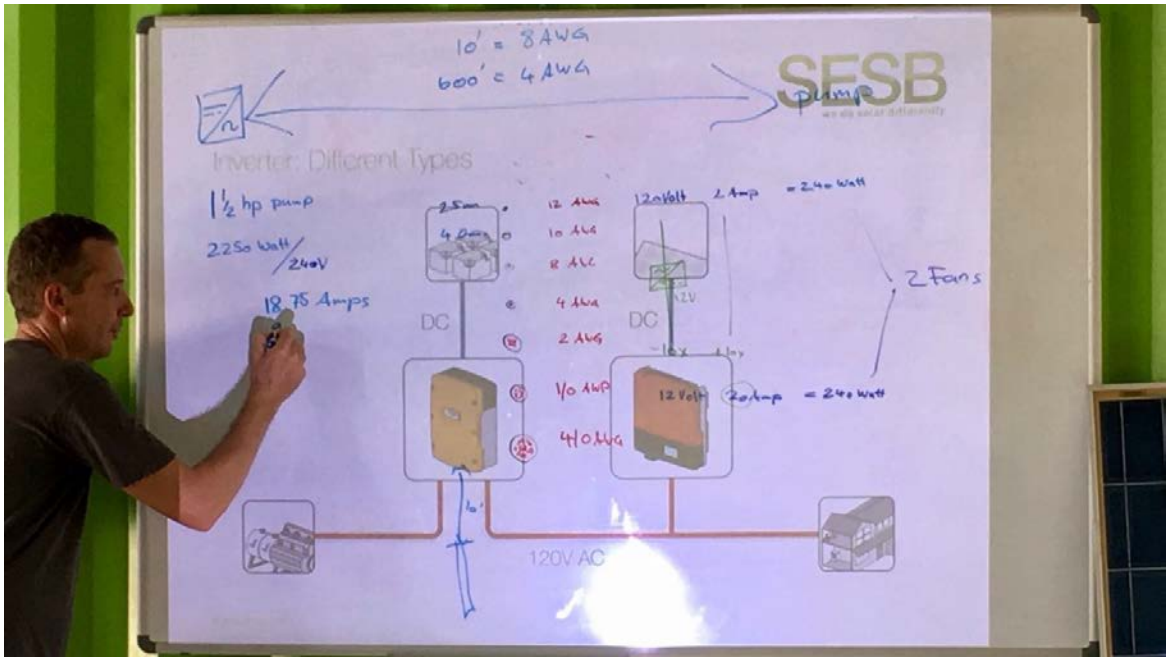 10' = 8 AWG
600' = 4 AWG
SESB
we do solar differently
pump
Inverter: Different Types
1 1/2 hp pump
2250 Watt/240V
18.75 Amps
DC
12 AWG
10 AWG
4 AWG
2 AWG
1/0
4/0 AWG
120Volt 2 Amp = 240 Watt
12V
DC
-10x
12 Volt 20 Amp = 240 Watt
2 Fans
10'
120V AC